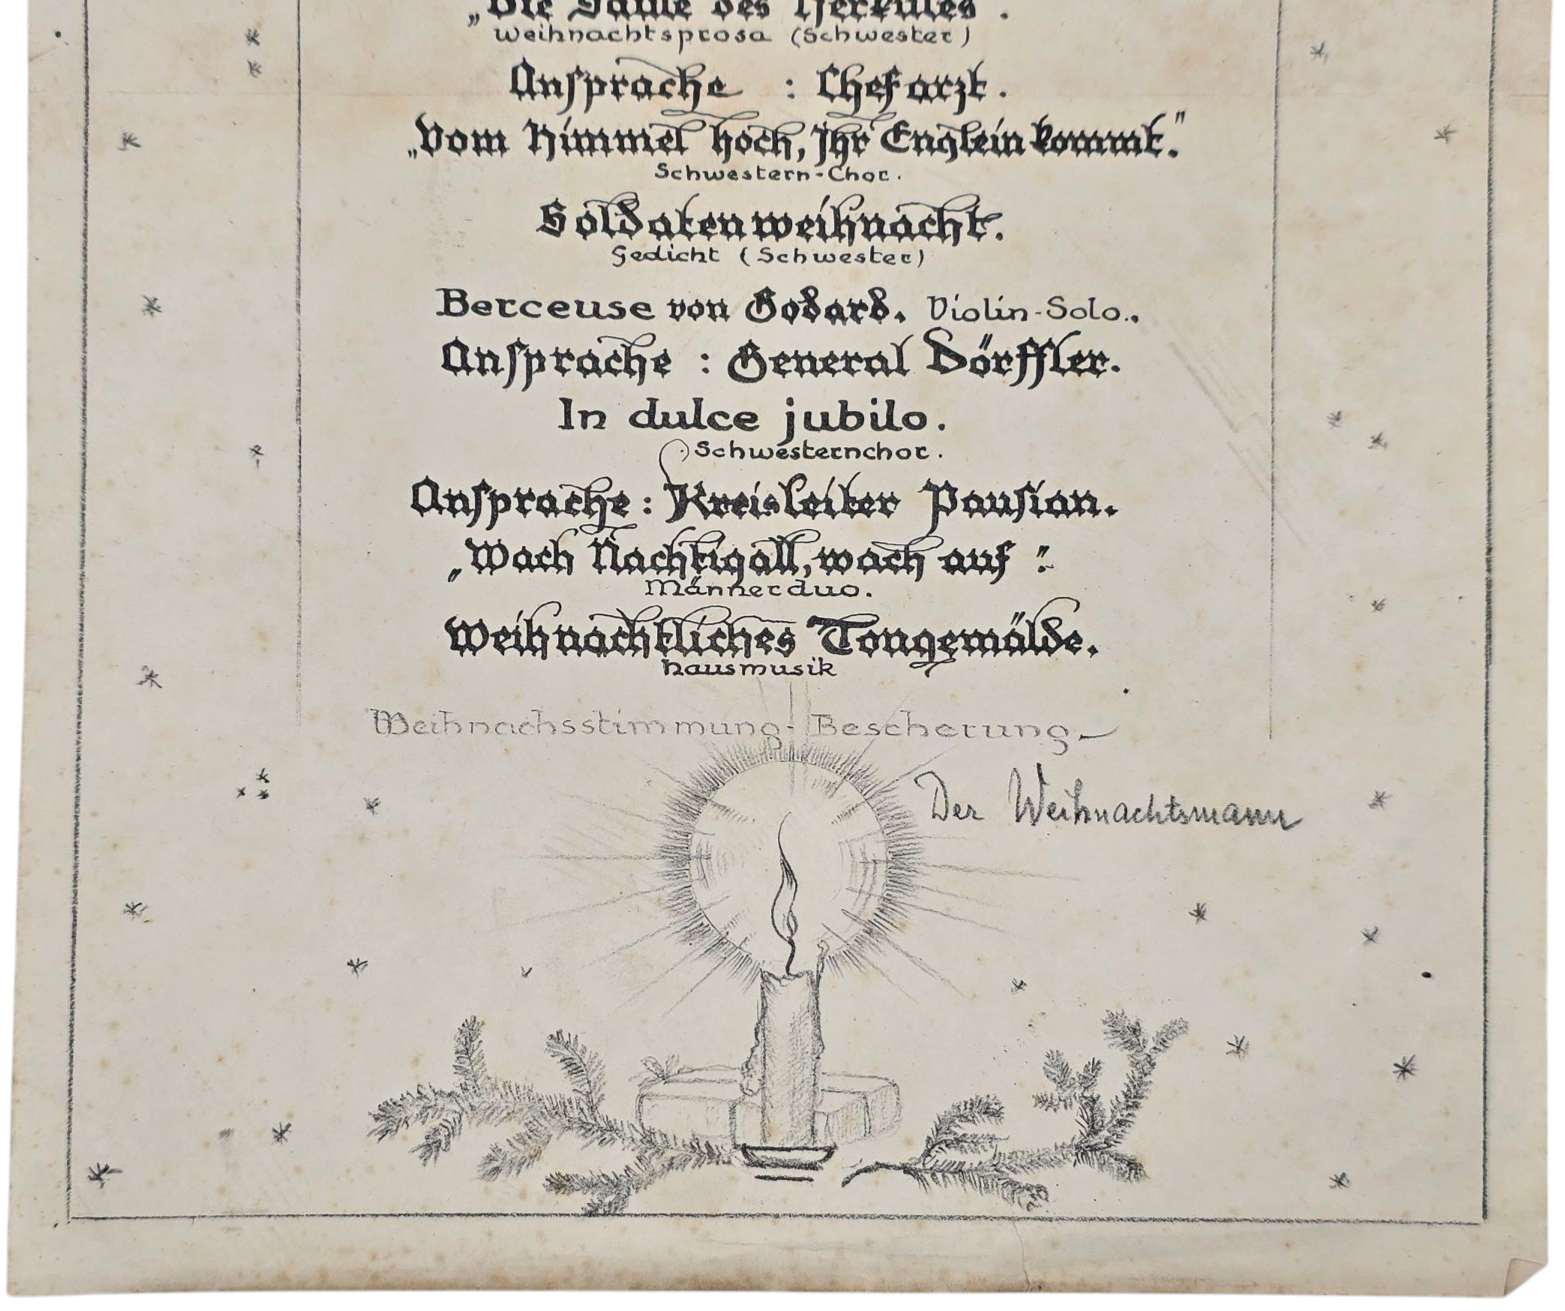 „Die Säule des Herkules".
Weihnachtsprosa (Schwester)
Ansprache : Chefarzt.
„Vom Himmel hoch, Ihr Englein kommt."
Schwestern-Chor.
Soldatenweihnacht.
Gedicht (Schwester)
Berceuse von Godard. Violin-Solo.
Ansprache : General Dörffler.
In dulce jubilo.
Schwesternchor.
Ansprache : Kreisleiter Pausian.
„Wach Nachtigall, wach auf".
Männerduo.
Weihnachtliches Tongemälde.
Hausmusik
Weihnachsstimmung - Bescherung
Der Weihnachtsmann